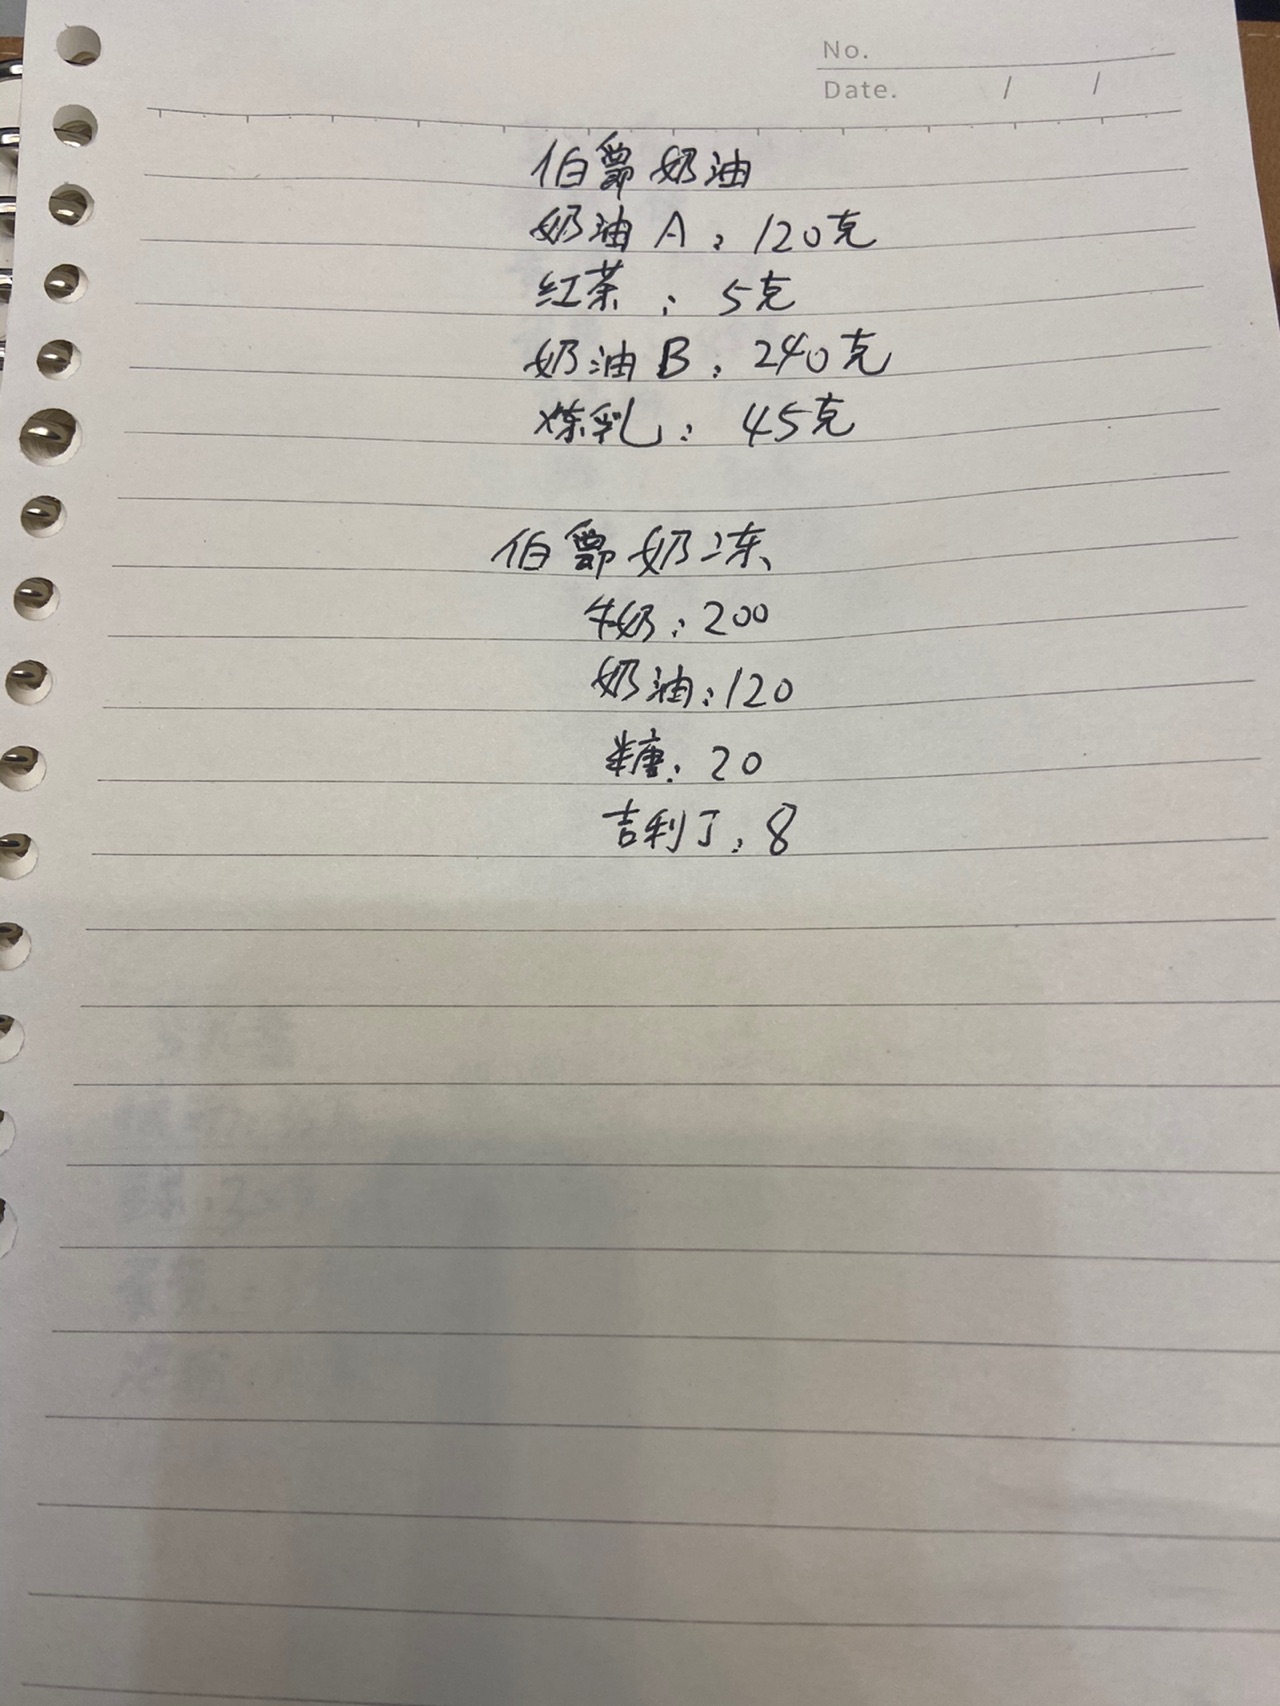 No.
Date. / /
伯爵奶油
奶油A：120克
红茶：5克
奶油B：240克
炼乳：45克
伯爵奶冻
牛奶：200
奶油：120
糖：20
吉利丁：8